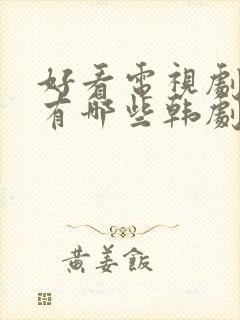 好看電視劇
有哪些韩劇
黄姜飯